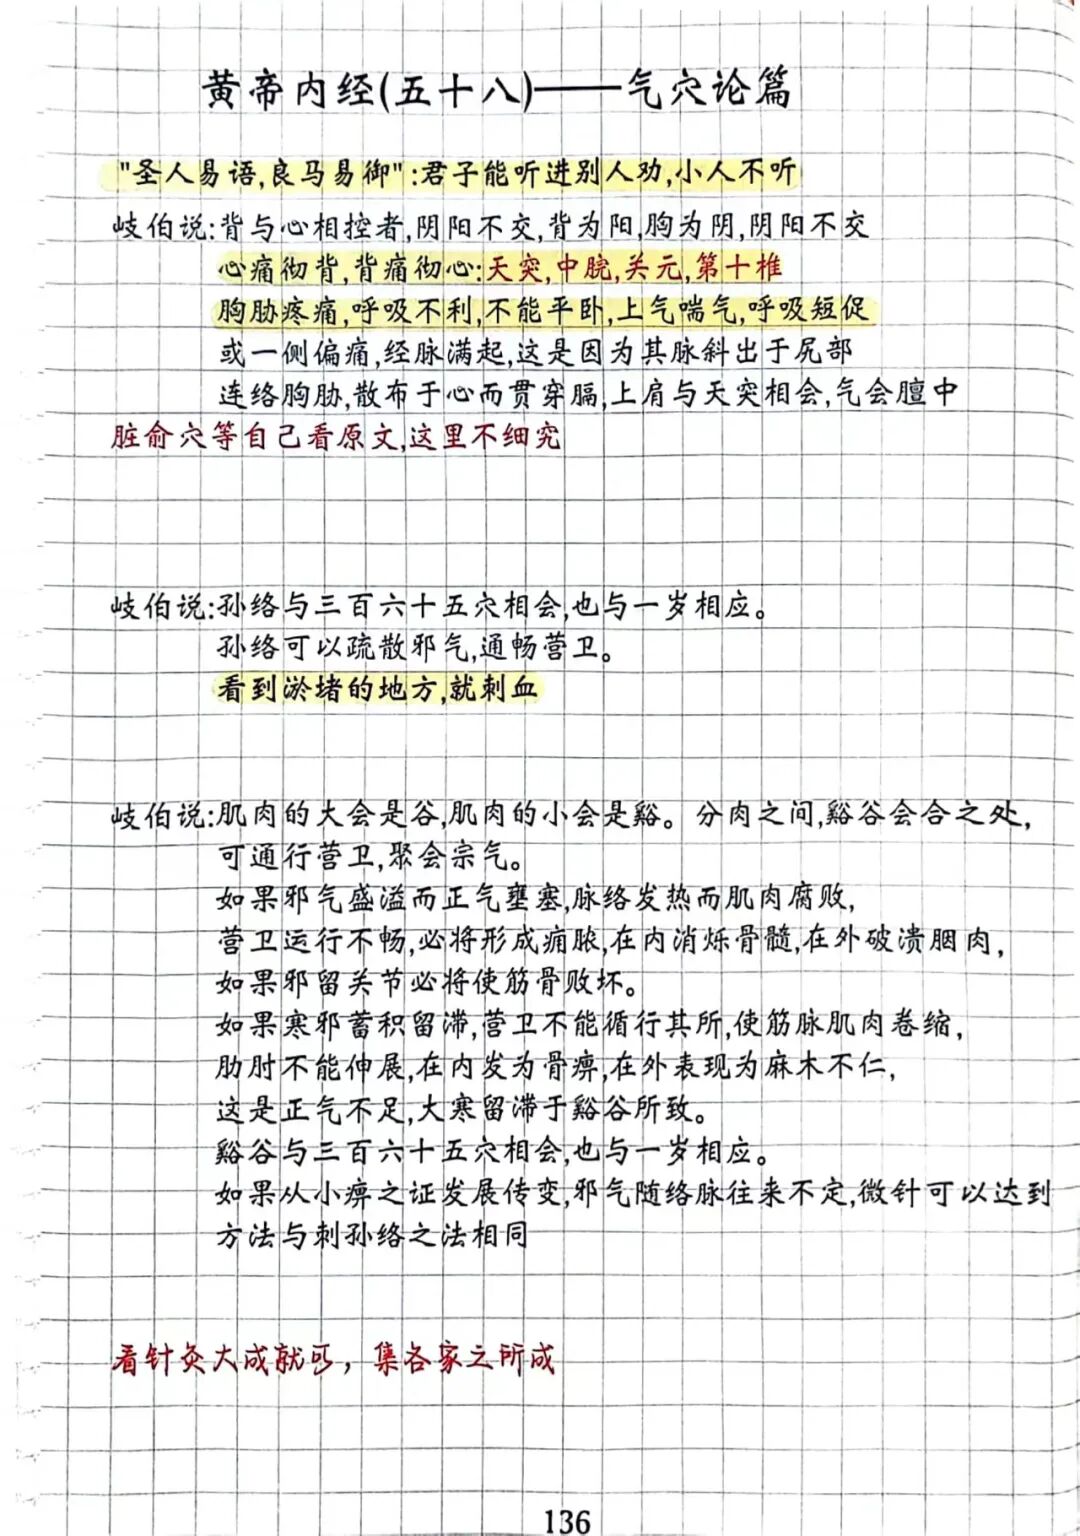 黄帝内经(五十八)——气穴论篇
"圣人易语,良马易御":君子能听进别人劝,小人不听
岐伯说:背与心相控者,阴阳不交,背为阳,胸为阴,阴阳不交
心痛彻背,背痛彻心:天突,中脘,关元,第十椎
胸胁疼痛,呼吸不利,不能平卧,上气喘气,呼吸短促
或一侧偏痛,经脉满起,这是因为其脉斜出于尻部
连络胸胁,散布于心而贯穿膈,上肩与天突相会,气会膻中
脏俞穴等自己看原文,这里不细究
岐伯说:孙络与三百六十五穴相会,也与一岁相应。
孙络可以疏散邪气,通畅营卫。
看到淤堵的地方,就刺血
岐伯说:肌肉的大会是谷,肌肉的小会是谿。分肉之间,谿谷会合之处,
可通行营卫,聚会宗气。
如果邪气盛溢而正气壅塞,脉络发热而肌肉腐败,
营卫运行不畅,必将形成痈脓,在内消烁骨髓,在外破溃䐃肉,
如果邪留关节必将使筋骨败坏。
如果寒邪蓄积留滞,营卫不能循行其所,使筋脉肌肉卷缩,
肋肘不能伸展,在内发为骨痹,在外表现为麻木不仁,
这是正气不足,大寒留滞于谿谷所致。
谿谷与三百六十五穴相会,也与一岁相应。
如果从小痹之证发展传变,邪气随络脉往来不定,微针可以达到
方法与刺孙络之法相同
看针灸大成就可，集各家之所成
136